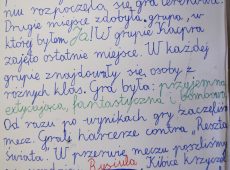 niu rozpoczęła się gra terenowa.
Drugie miejsce zdobyła grupa, w
której byłam Ja! W grupie Kacpra
zajęto ostatnie miejsce. W każdej
grupie znajdowały się osoby z
różnych klas. Gra była: przyjemna
fantastyczna i
Od razu po wynikach gry zaczęliśmy
mecz. Grali harcerze contra "Reszta
Świata". W przerwie meczu poszliśmy
Kibice krzyczeli